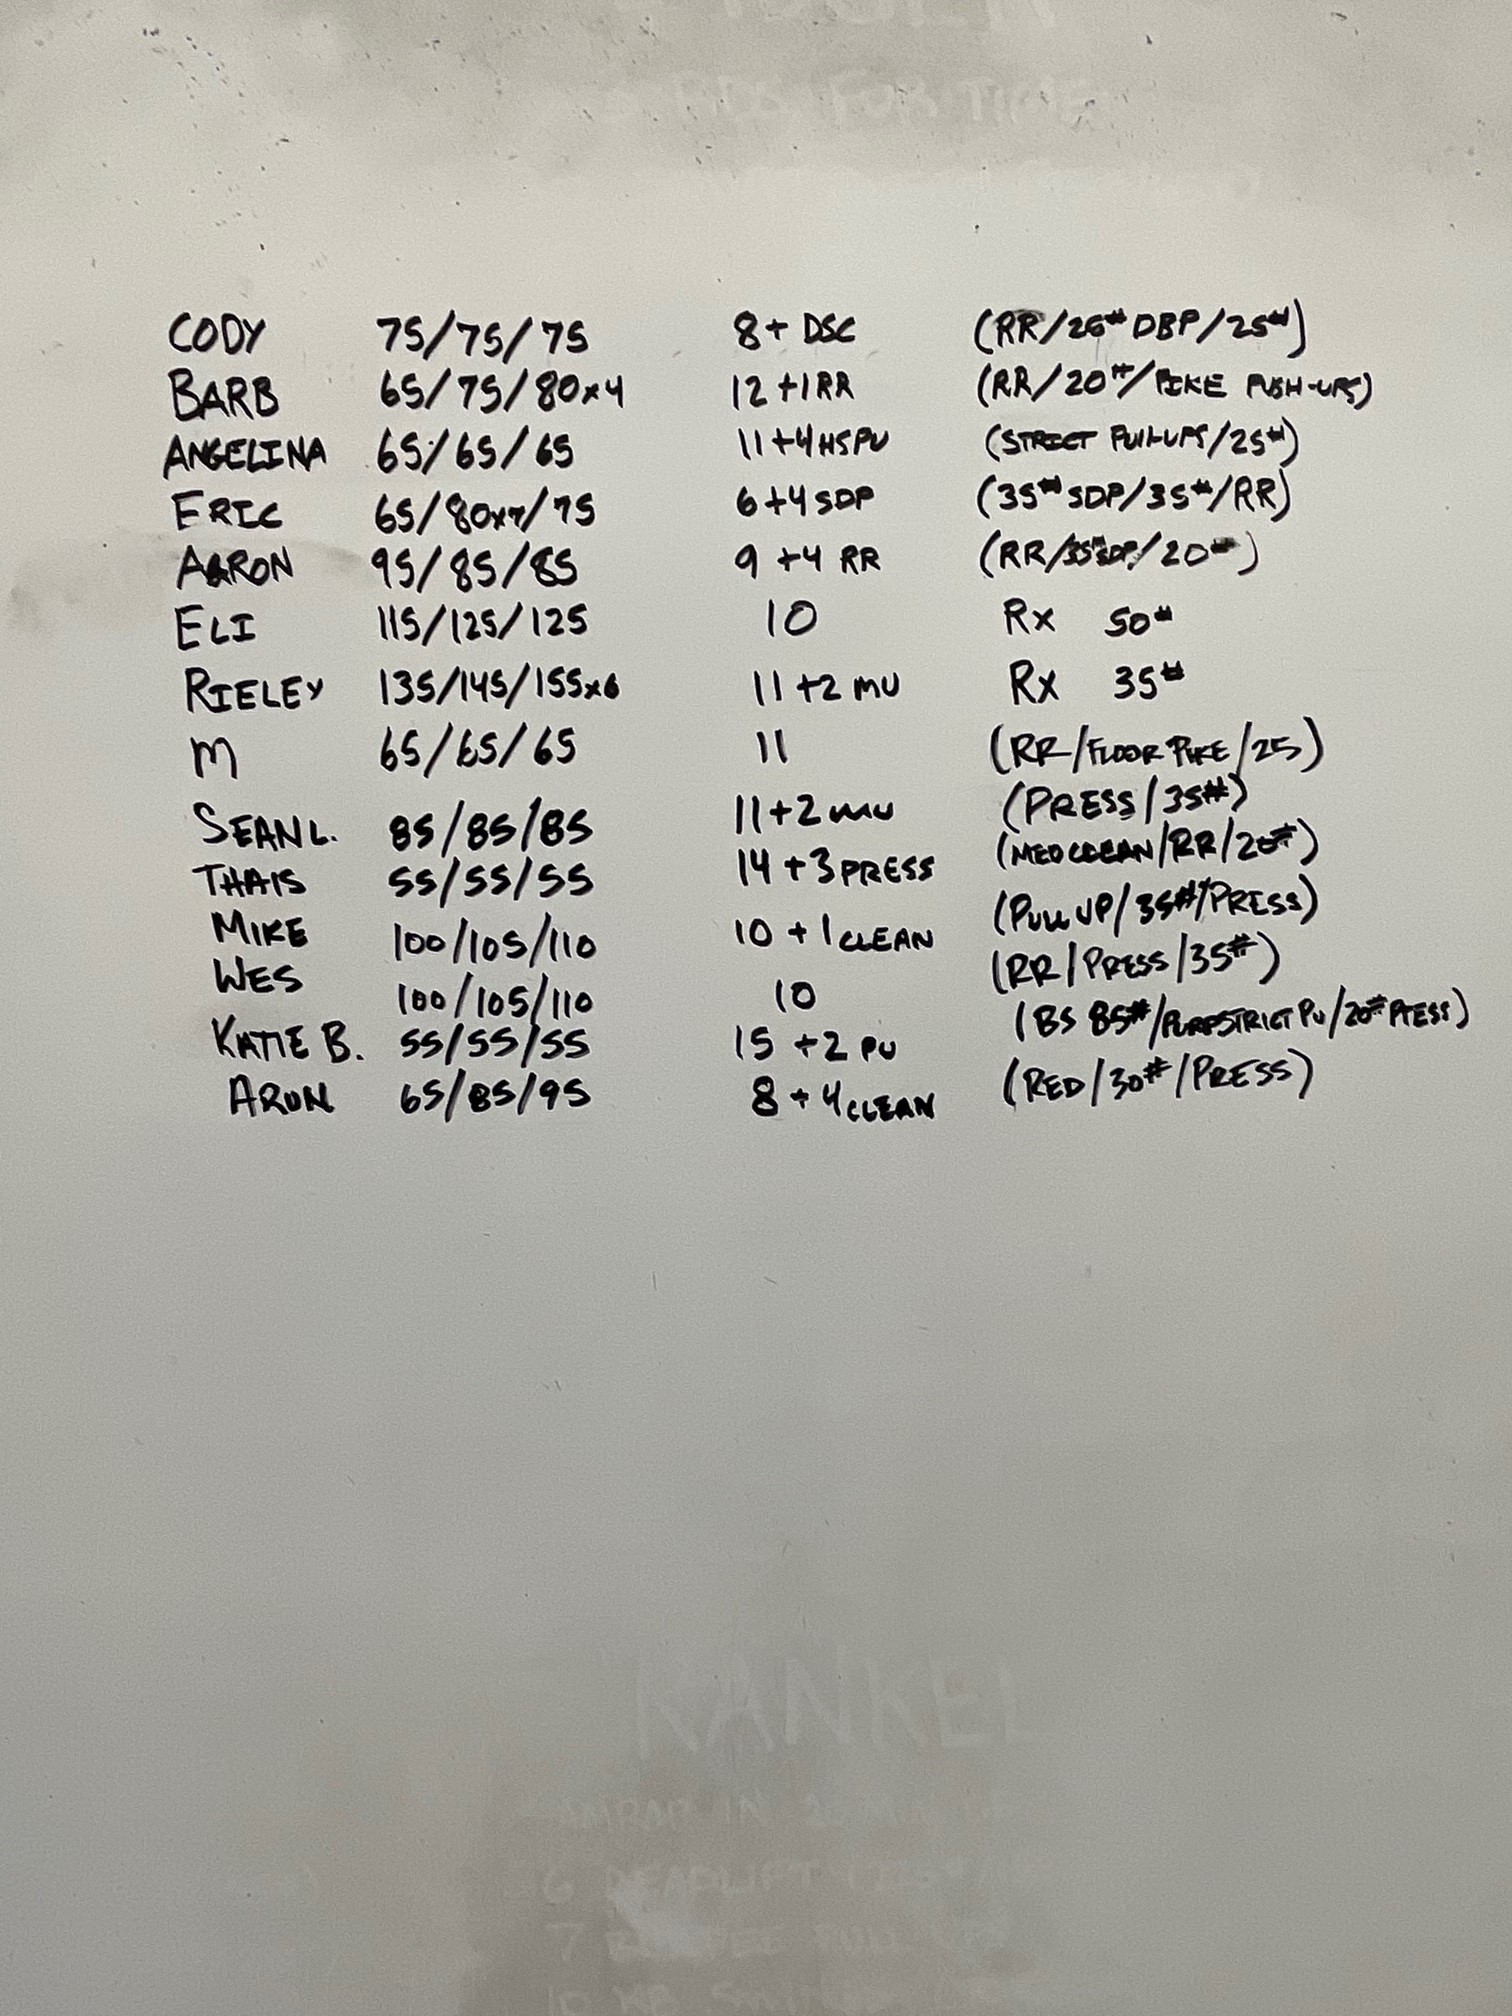 RDS FOR TIME
CODY 75/75/75 8+ DSC (RR/26# DBP/25#)
BARB 65/75/80x4 12+1RR (RR/20#/PIKE PUSH-UPS)
ANGELINA 65/65/65 11+4HSPU (STRICT PULL-UPS/25#)
ERIC 65/80x7/75 6+4SDP (35# SDP/35#/RR)
AARON 95/85/85 9+4 RR (RR/35#SDP/20#)
ELI 115/125/125 10 Rx 50#
RIELEY 135/145/155x6 11+2 MU Rx 35#
M 65/65/65 11 (RR/FLOOR PIKE/25)
SEAN L. 85/85/85 11+2 MU (PRESS/35#)
THAIS 55/55/55 14+3 PRESS (MED CLEAN/RR/20#)
MIKE 100/105/110 10+1 CLEAN (PULL UP/35#/PRESS)
WES 100/105/110 10 (RR/PRESS/35#)
KATIE B. 55/55/55 15+2 PU (BS 85#/PURP STRICT PU/20# PRESS)
ARON 65/85/95 8+4 CLEAN (RED/30#/PRESS)
KANKEL
AMRAP IN 20 MIN
6 DEADLIFT
7 PULL-UPS
10 KB SWINGS